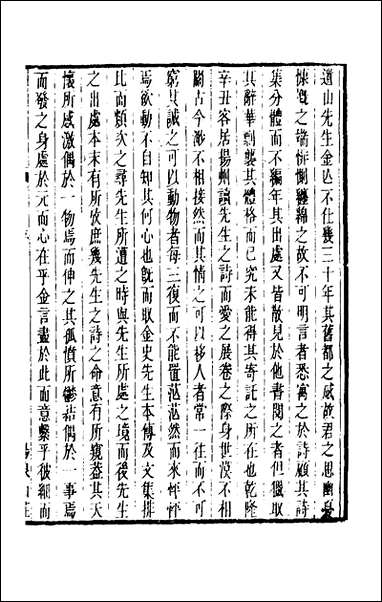 遺山先生金亡不仕幾三十年其舊都之感故君之思幽憂
悽戾之端悱惻纏綿之故不可明言者悉寓之於詩顧其詩
集分體而不編年其出處又皆散見於他書閱之者但獵取
其辭華剽襲其體格而已究未能得其寄託之所在也乾隆
辛丑客居揚州讀先生之詩而愛之展卷之際身世漠不相
關古今渺不相接然而其情之可以移人者常一往而不可
窮其誠之可以動物者每三復而不能置茫茫然而來怦怦
焉欲動不自知其何心也旣而取金史先生本傳及文集排
比而類次之尋先生所遭之時與先生所處之境而後先生
之出處本末有所攷庶幾先生之詩之命意有所窺蓋其天
懷所感激偶於一物焉而伸之其孤憤所鬱結偶於一事焉
而發之身處於元而心在乎金言盡於此而意繫乎彼細而